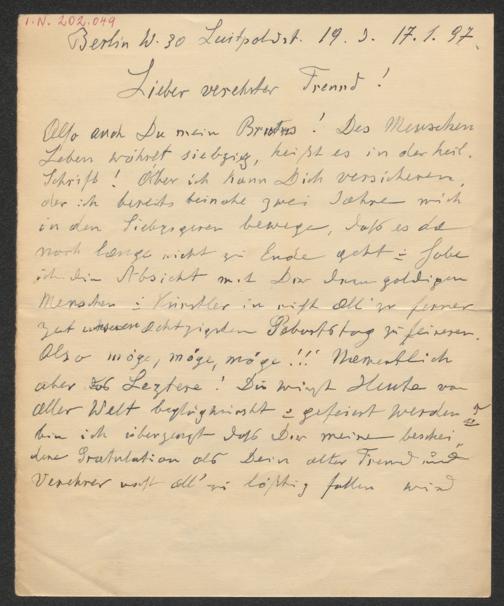 I.N. 202.049
Berlin W. 30 Luitpoldst. 19. 17.1.
Lieber verehrter Freund!
Also auch Du mein Brutus! Des Menschen
Leben währet siebzig, heißt es in der heil.
Schrift! Aber ich kann Dich versichern,
der ich bereits beinahe zwei Jahre mich
in den Siebzigern bewege, daß es da
noch lange nicht zu Ende geht & habe
ich die Absicht mit Dir goldigen
Menschen & Künstler in nicht all' zu ferner
Zeit unseren achtzigsten Geburtstag zu feiern.
Also möge, möge, möge!!! Namentlich
aber das Letztere! Du wirst Heute von
aller Welt beglückwünscht & gefeiert werden &
bin ich überzeugt daß Dir meine beschei„
dene Gratulation als Dein alter Freund und
Verehrer nicht all' zu lästig fallen wird